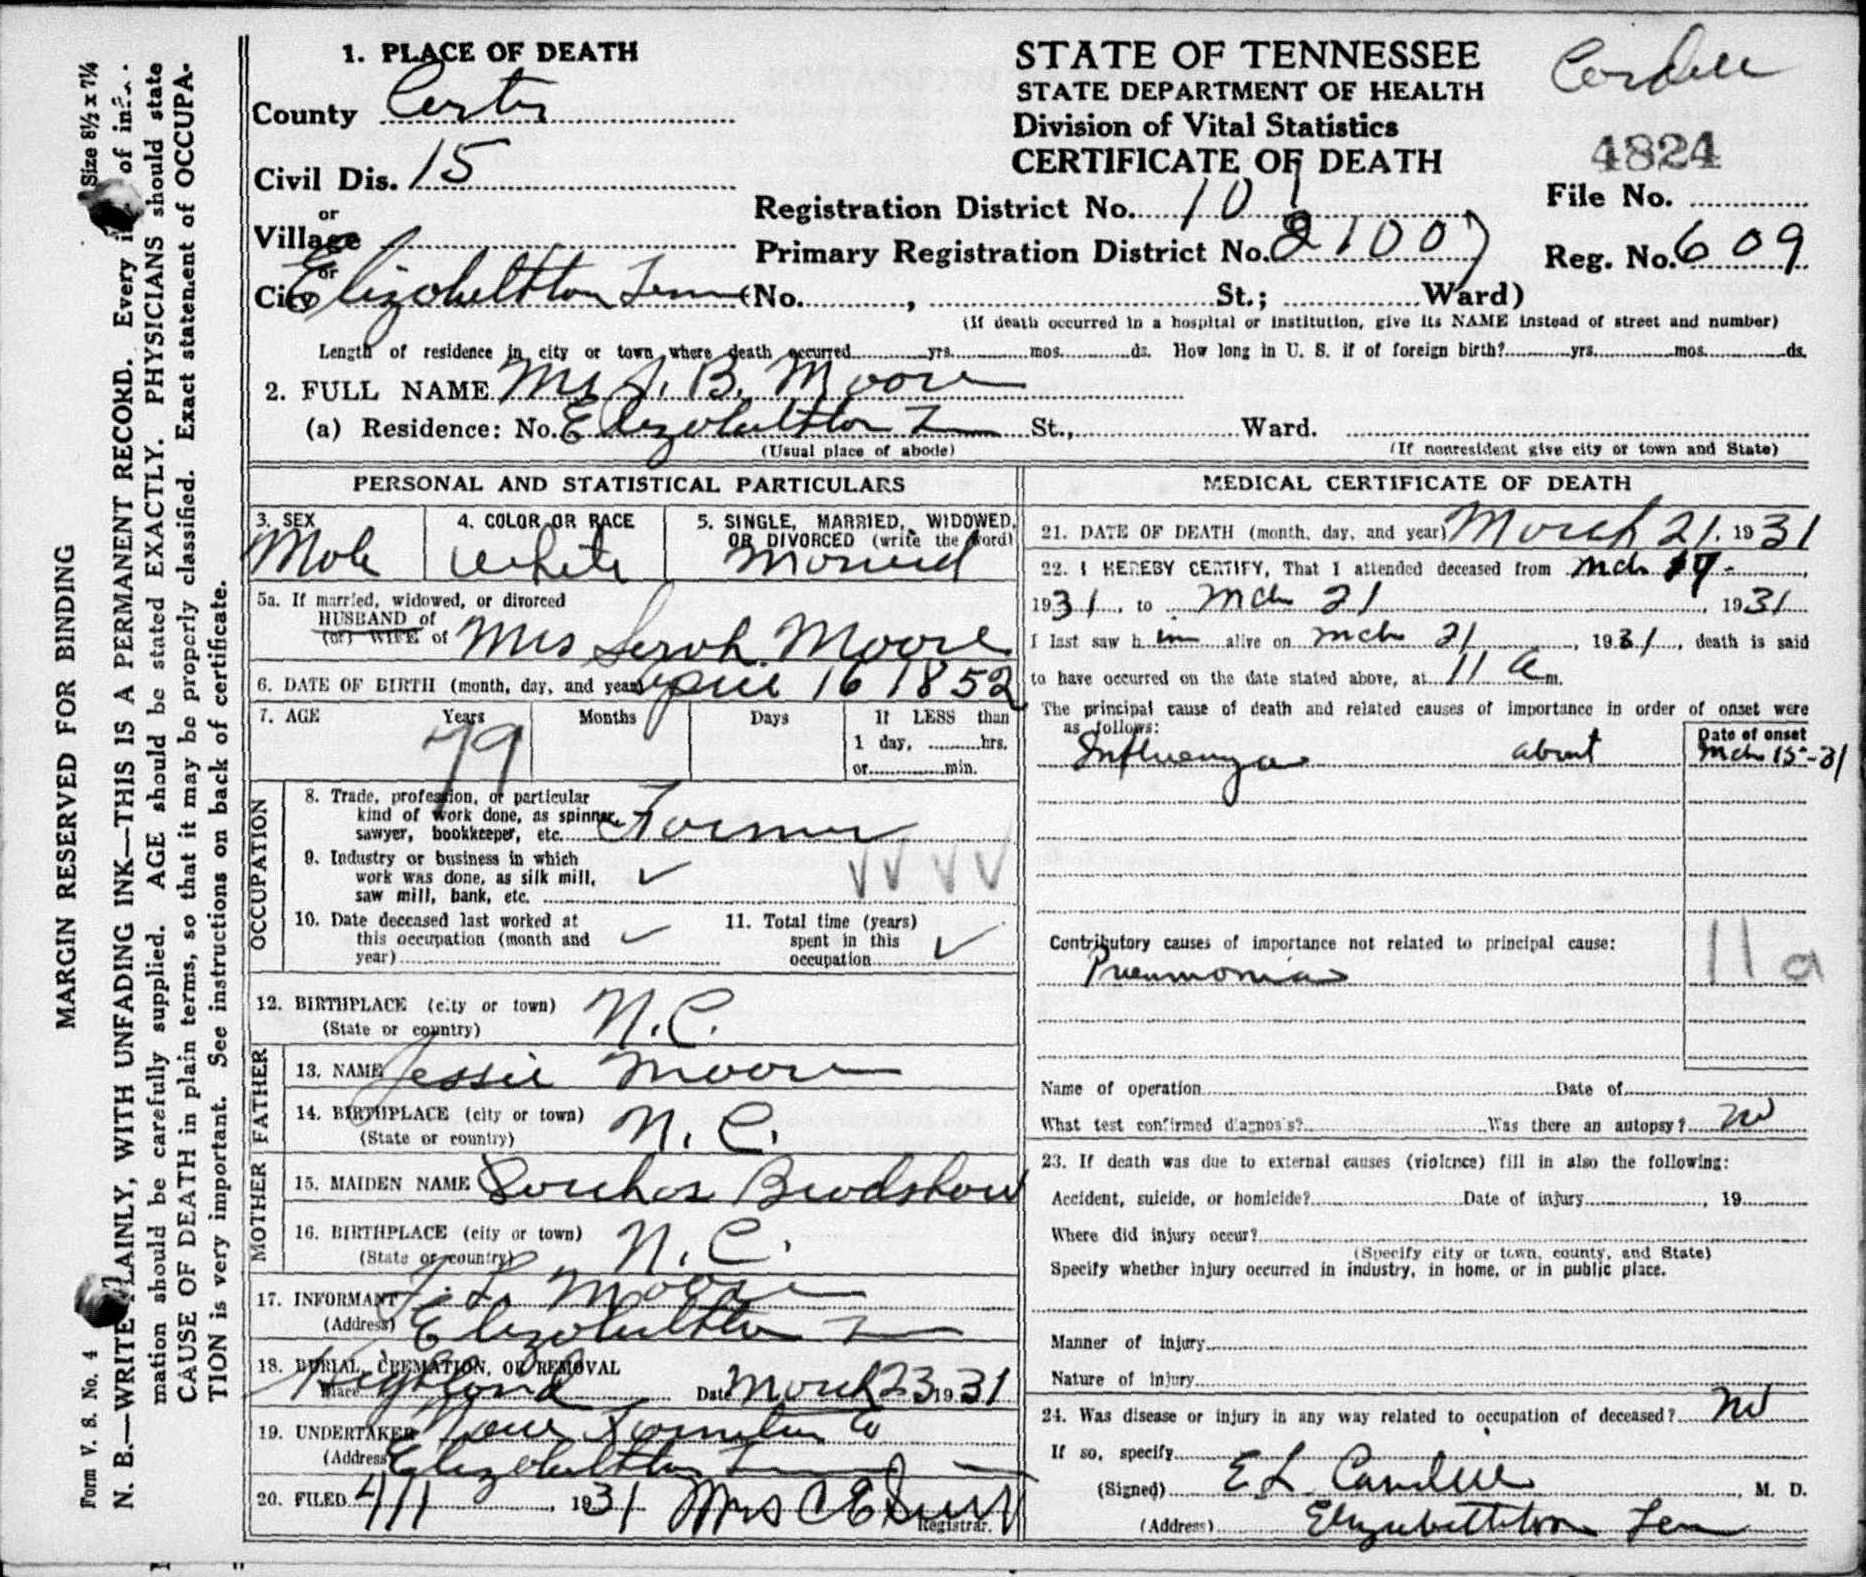 1. PLACE OF DEATH
County Carter
Civil Dis. 15
or
Village
or
City Elizabethton Tenn (No. , St.; Ward)
STATE OF TENNESSEE
STATE DEPARTMENT OF HEALTH
Division of Vital Statistics
CERTIFICATE OF DEATH
Registration District No. 101
Primary Registration District No. 21007
4824
File No.
Reg. No. 609
(If death occurred in a hospital or institution, give its NAME instead of street and number)
Length of residence in city or town where death occurred yrs. mos. ds. How long in U. S. if of foreign birth? yrs. mos. ds.
2. FULL NAME J. B. Moore
(a) Residence: No. Elizabethton St., Ward.
(Usual place of abode) (If nonresident give city or town and State)
PERSONAL AND STATISTICAL PARTICULARS
3. SEX 4. COLOR OR RACE 5. SINGLE, MARRIED, WIDOWED,
OR DIVORCED (write the word)
Male White Married
5a. If married, widowed, or divorced
HUSBAND of
(or) WIFE of Mrs Sarah Moore
6. DATE OF BIRTH (month, day, and year) April 16 1852
7. AGE Years Months Days If LESS than
79
1 day, hrs.
or min.
OCCUPATION
8. Trade, profession, or particular
kind of work done, as spinner,
sawyer, bookkeeper, etc. Farmer
9. Industry or business in which
work was done, as silk mill,
saw mill, bank, etc.
10. Date deceased last worked at
this occupation (month and
year)
11. Total time (years)
spent in this
occupation
12. BIRTHPLACE (city or town) N.C.
(State or country)
FATHER
13. NAME Jessie Moore
14. BIRTHPLACE (city or town) N.C.
(State or country)
MOTHER
15. MAIDEN NAME Bradshaw
16. BIRTHPLACE (city or town) N.C.
(State or country)
17. INFORMANT Moore
(Address) Elizabethton
18. BURIAL, CREMATION, OR REMOVAL
Place Highland Date March 23 1931
19. UNDERTAKER Co
(Address) Elizabethton
20. FILED 4/11, 1931 Mrs C E
Registrar.
MEDICAL CERTIFICATE OF DEATH
21. DATE OF DEATH (month, day, and year) March 21. 1931
22. I HEREBY CERTIFY, That I attended deceased from Mch 17-,
1931, to Mch 21, 1931
I last saw him alive on Mch 21, 1931, death is said
to have occurred on the date stated above, at 11 A m.
The principal cause of death and related causes of importance in order of onset were
as follows:
Date of onset
Influenza about Mch 15-31
Contributory causes of importance not related to principal cause:
Pneumonia
11 a
Name of operation Date of
What test confirmed diagnosis? Was there an autopsy? no
23. If death was due to external causes (violence) fill in also the following:
Accident, suicide, or homicide? Date of injury , 19
Where did injury occur?
(Specify city or town, county, and State)
Specify whether injury occurred in industry, in home, or in public place.
Manner of injury
Nature of injury
24. Was disease or injury in any way related to occupation of deceased? no
If so, specify
(Signed) E L , M. D.
(Address) Elizabethton Ten
MARGIN RESERVED FOR BINDING
Size 8½ x 7¼
Form V. S. No. 4
N. B.—WRITE PLAINLY, WITH UNFADING INK—THIS IS A PERMANENT RECORD. Every of
mation should be carefully supplied. AGE should be stated EXACTLY. PHYSICIANS should state
CAUSE OF DEATH in plain terms, so that it may be properly classified. Exact statement of OCCUPA-
TION is very important. See instructions on back of certificate.